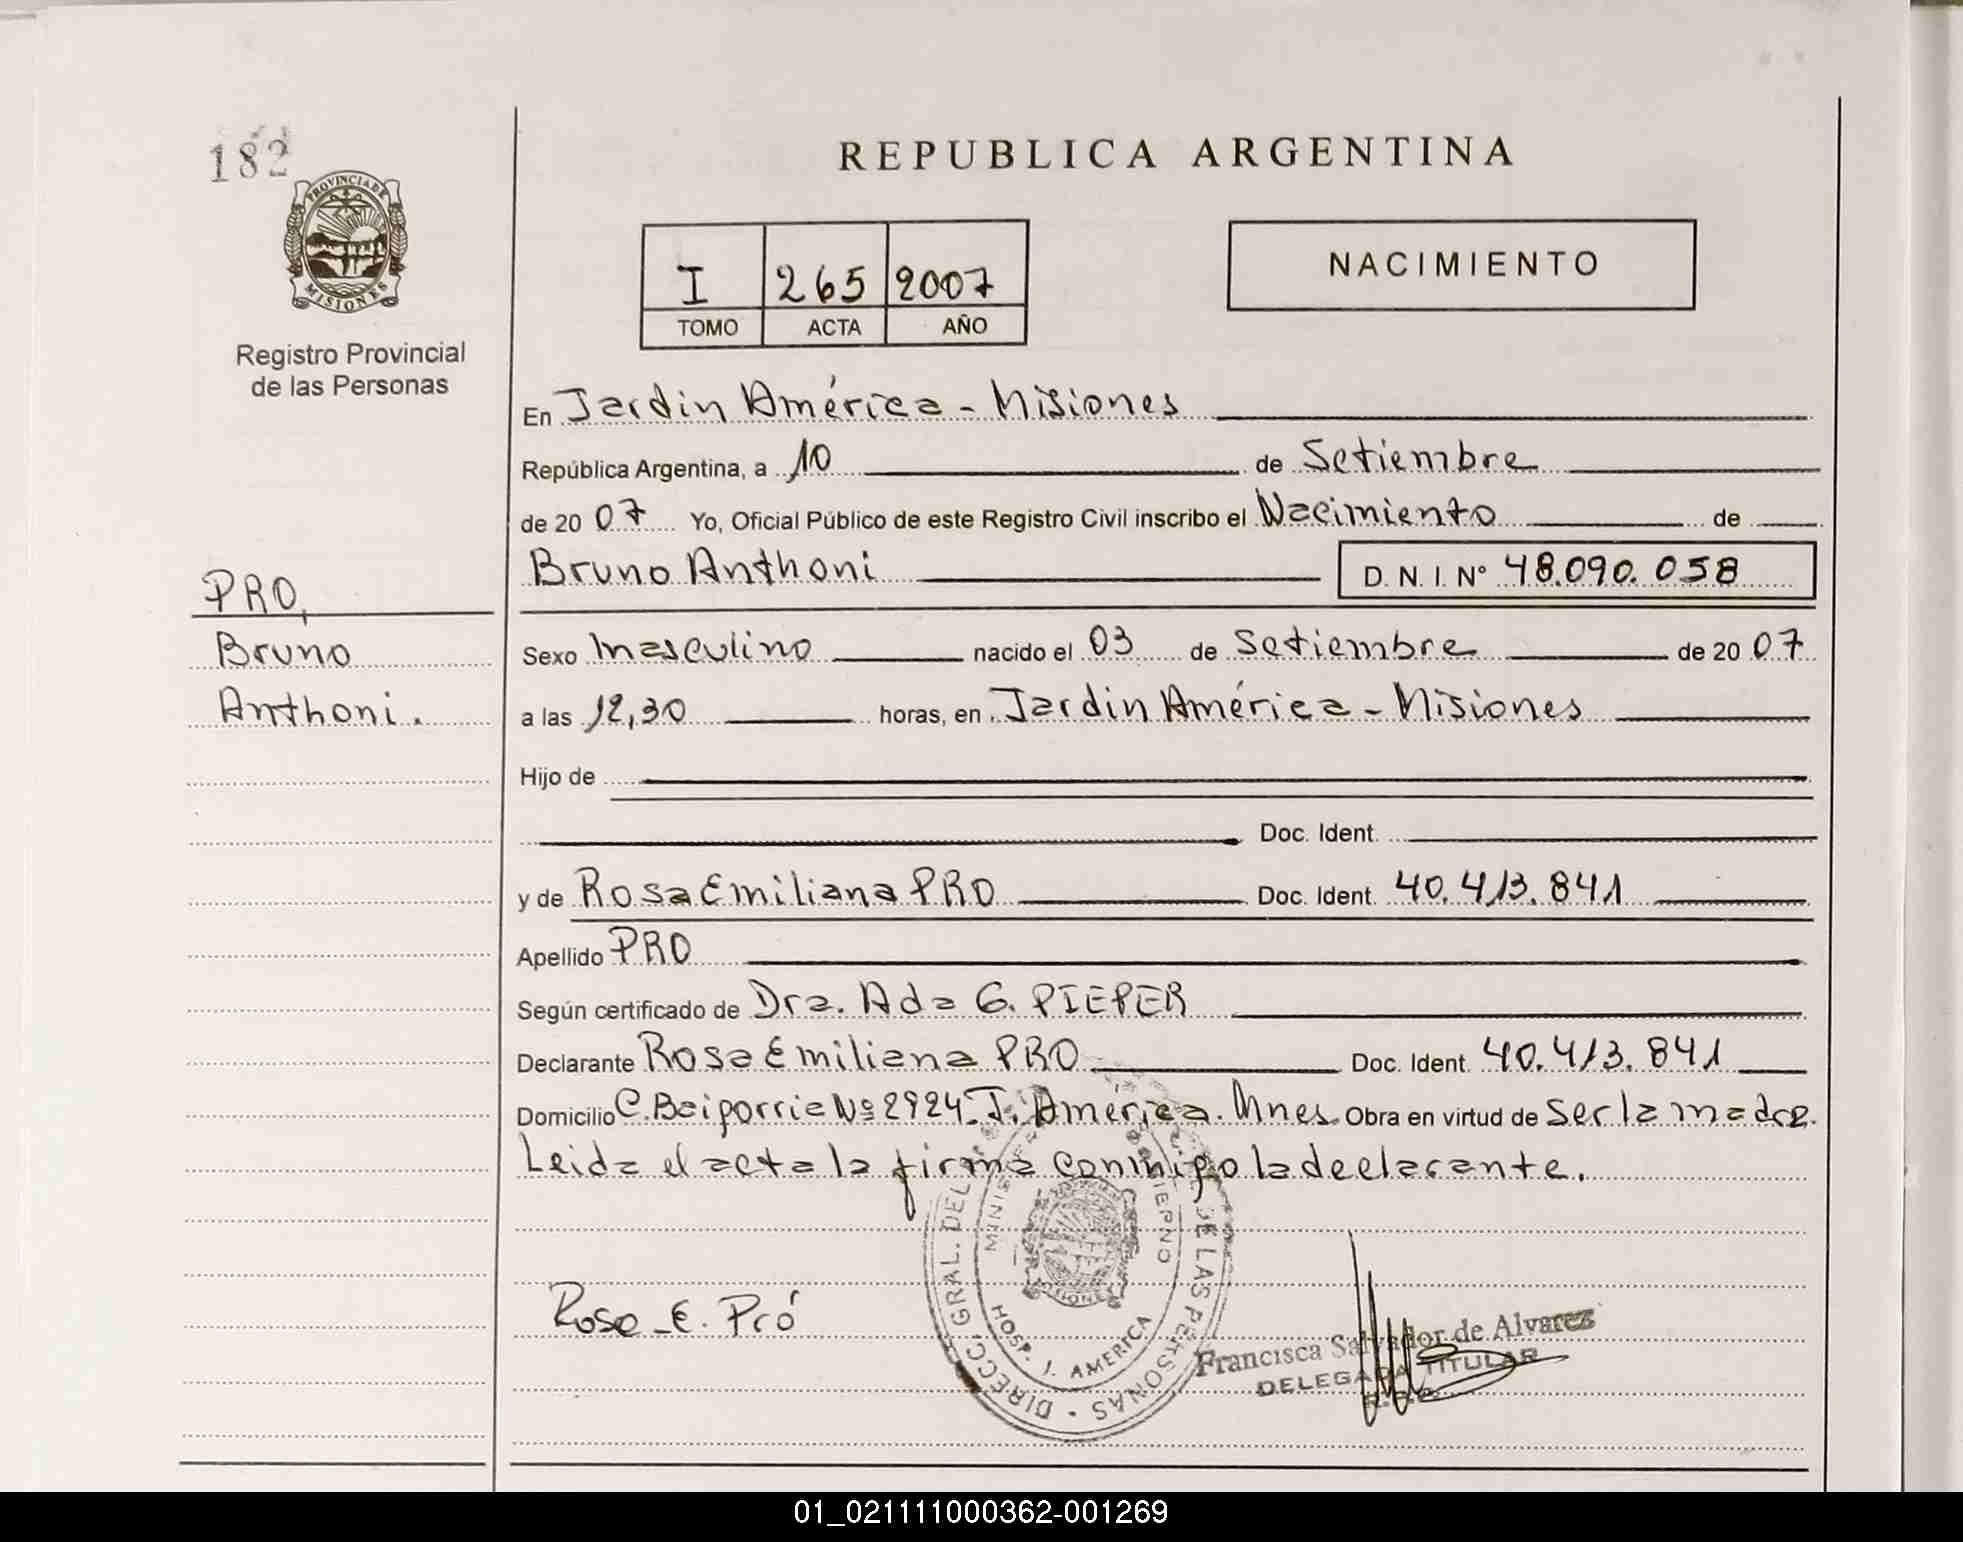 182
PROVINCIA DE
MISIONES
Registro Provincial
de las Personas
PRO,
Bruno
Anthoni.
REPUBLICA ARGENTINA
I 265 2007
TOMO ACTA AÑO
NACIMIENTO
En Jardin América - Misiones
República Argentina, a 10 de Setiembre
de 20 07 Yo, Oficial Público de este Registro Civil inscribo el Nacimiento de
Bruno Anthoni D. N. I. N° 48.090.058
Sexo Masculino nacido el 03 de Setiembre de 20 07
a las 12,30 horas, en Jardin América - Misiones
Hijo de
Doc. Ident.
y de Rosa Emiliana PRO Doc. Ident. 40.413.841
Apellido PRO
Según certificado de Dra. Ada G. PIEPER
Declarante Rosa Emiliana PRO Doc. Ident. 40.413.841
Domicilio C. Beiporrie Nº 2924 J. América. Mnes. Obra en virtud de ser la madre.
Leida el acta la firma conmigo la declarante.
DIRECC. GRAL. DEL DE LAS PERSONAS
HOSP. J. AMERICA
Rosa E. Pró
Francisca Salvador de Alvarez
DELEGADA TITULAR
01_021111000362-001269